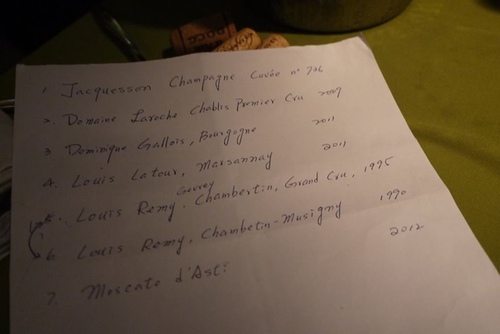 1 Jacquesson Champagne Cuvée n° 736
2 Domaine Laroche Chablis Premier Cru 2009
3 Dominique Gallois, Bourgogne 2011
4. Louis Latour, Marsannay 2011
Gevrey
5. Louis Remy, Chambertin, Grand Cru, 1995
6 Louis Remy, Chambetin-Musigny 1990
7. Moscato d'Asti 2012